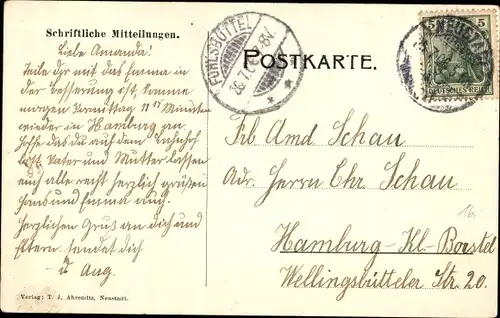 Schriftliche Mitteilungen.
Liebe Amanda!
Teile dir mit das Emma in
der Besserung ist, komme
morgen Vormittag 11 15 Minuten
wieder in Hamburg an
hoffe das du auf dem Bahnhof
bist. Vater und Mutter lassen
euch alle recht herzlich grüßen
Hans und Emma auch.
Herzlichen Gruß an dich und
Eltern sendet dich
Aug.
Verlag: T. J. Ahrendtz, Neustadt.
FUHLSBÜTTEL
26.7. 8V
POSTKARTE.
NEUSTADT
5
DEUTSCHES REICH
Frl Amd Schau
Adr. Herrn Chr. Schau
16.-
Hamburg-Kl-Borstel
Wellingsbütteler Str. 20.